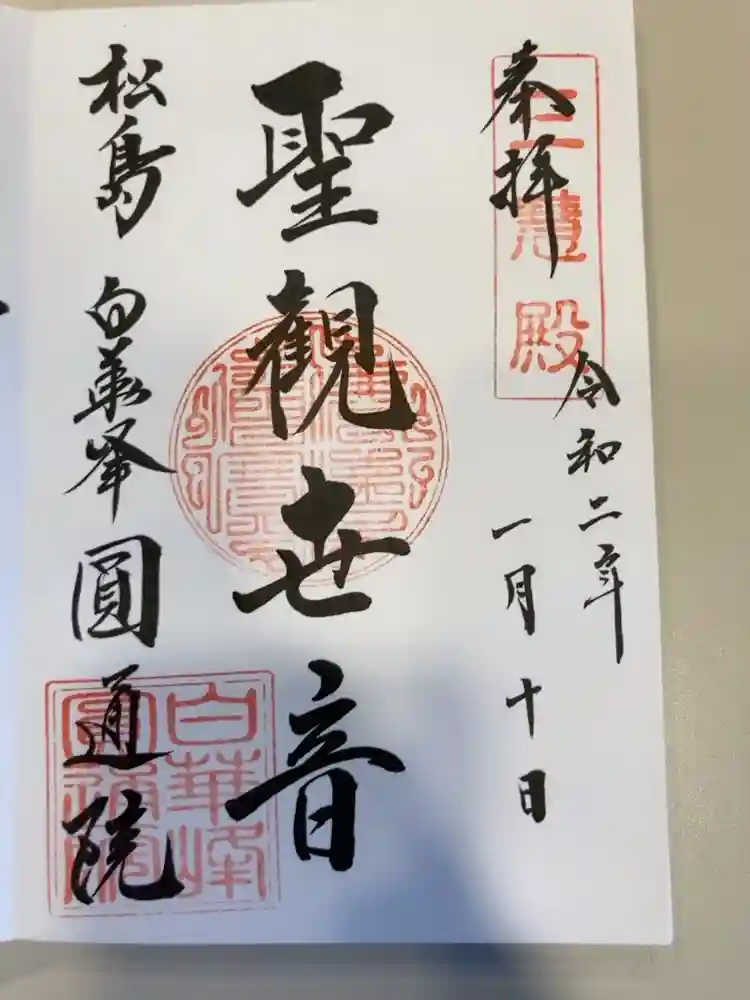 奉拝
三慧殿
令和二年
一月十日
聖観世音
松島 白華峯 圓通院
白華峰
圓通院